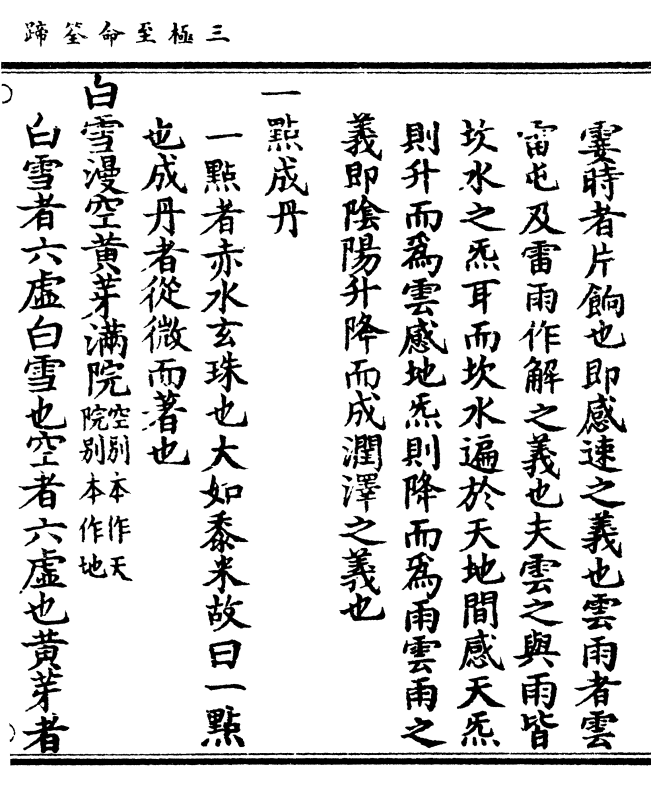 三極至命筌蹄
霎時者片餉也即感速之義也雲雨者雲
雷屯及雷雨作解之義也夫雲之與雨皆
坎水之炁耳而坎水遍於天地間感天炁
則升而爲雲感地炁則降而爲雨雲雨之
義即隂陽升降而成潤澤之義也
一點成丹
一點者赤水玄珠也大如黍米故曰一點
也成丹者從微而著也
白雪漫空黄芽滿院空別本作天院別本作地
白雪者六虛白雪也空者六虛也黄芽者